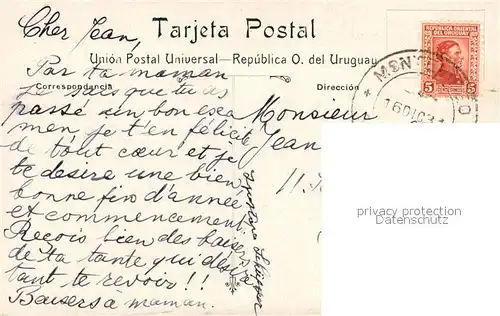 Tarjeta Postal
Unión Postal Universal—República O. del Uruguay
Correspondencia
Dirección
Cher Jean,
Par ta maman
je sais que tu as
passé un bon exa
men, je t'en félicite
de tout cœur et je
te desire une bien
bonne fin d'année
et commencement.
Reçois bien des baisers
de ta tante qui désire
tant te revoir!!
Baisers à maman.
Monsieur
Jean
REPUBLICA ORIENTAL
DEL URUGUAY
5 CENTESIMOS 5
16 DIC 3
privacy protection
Datenschutz